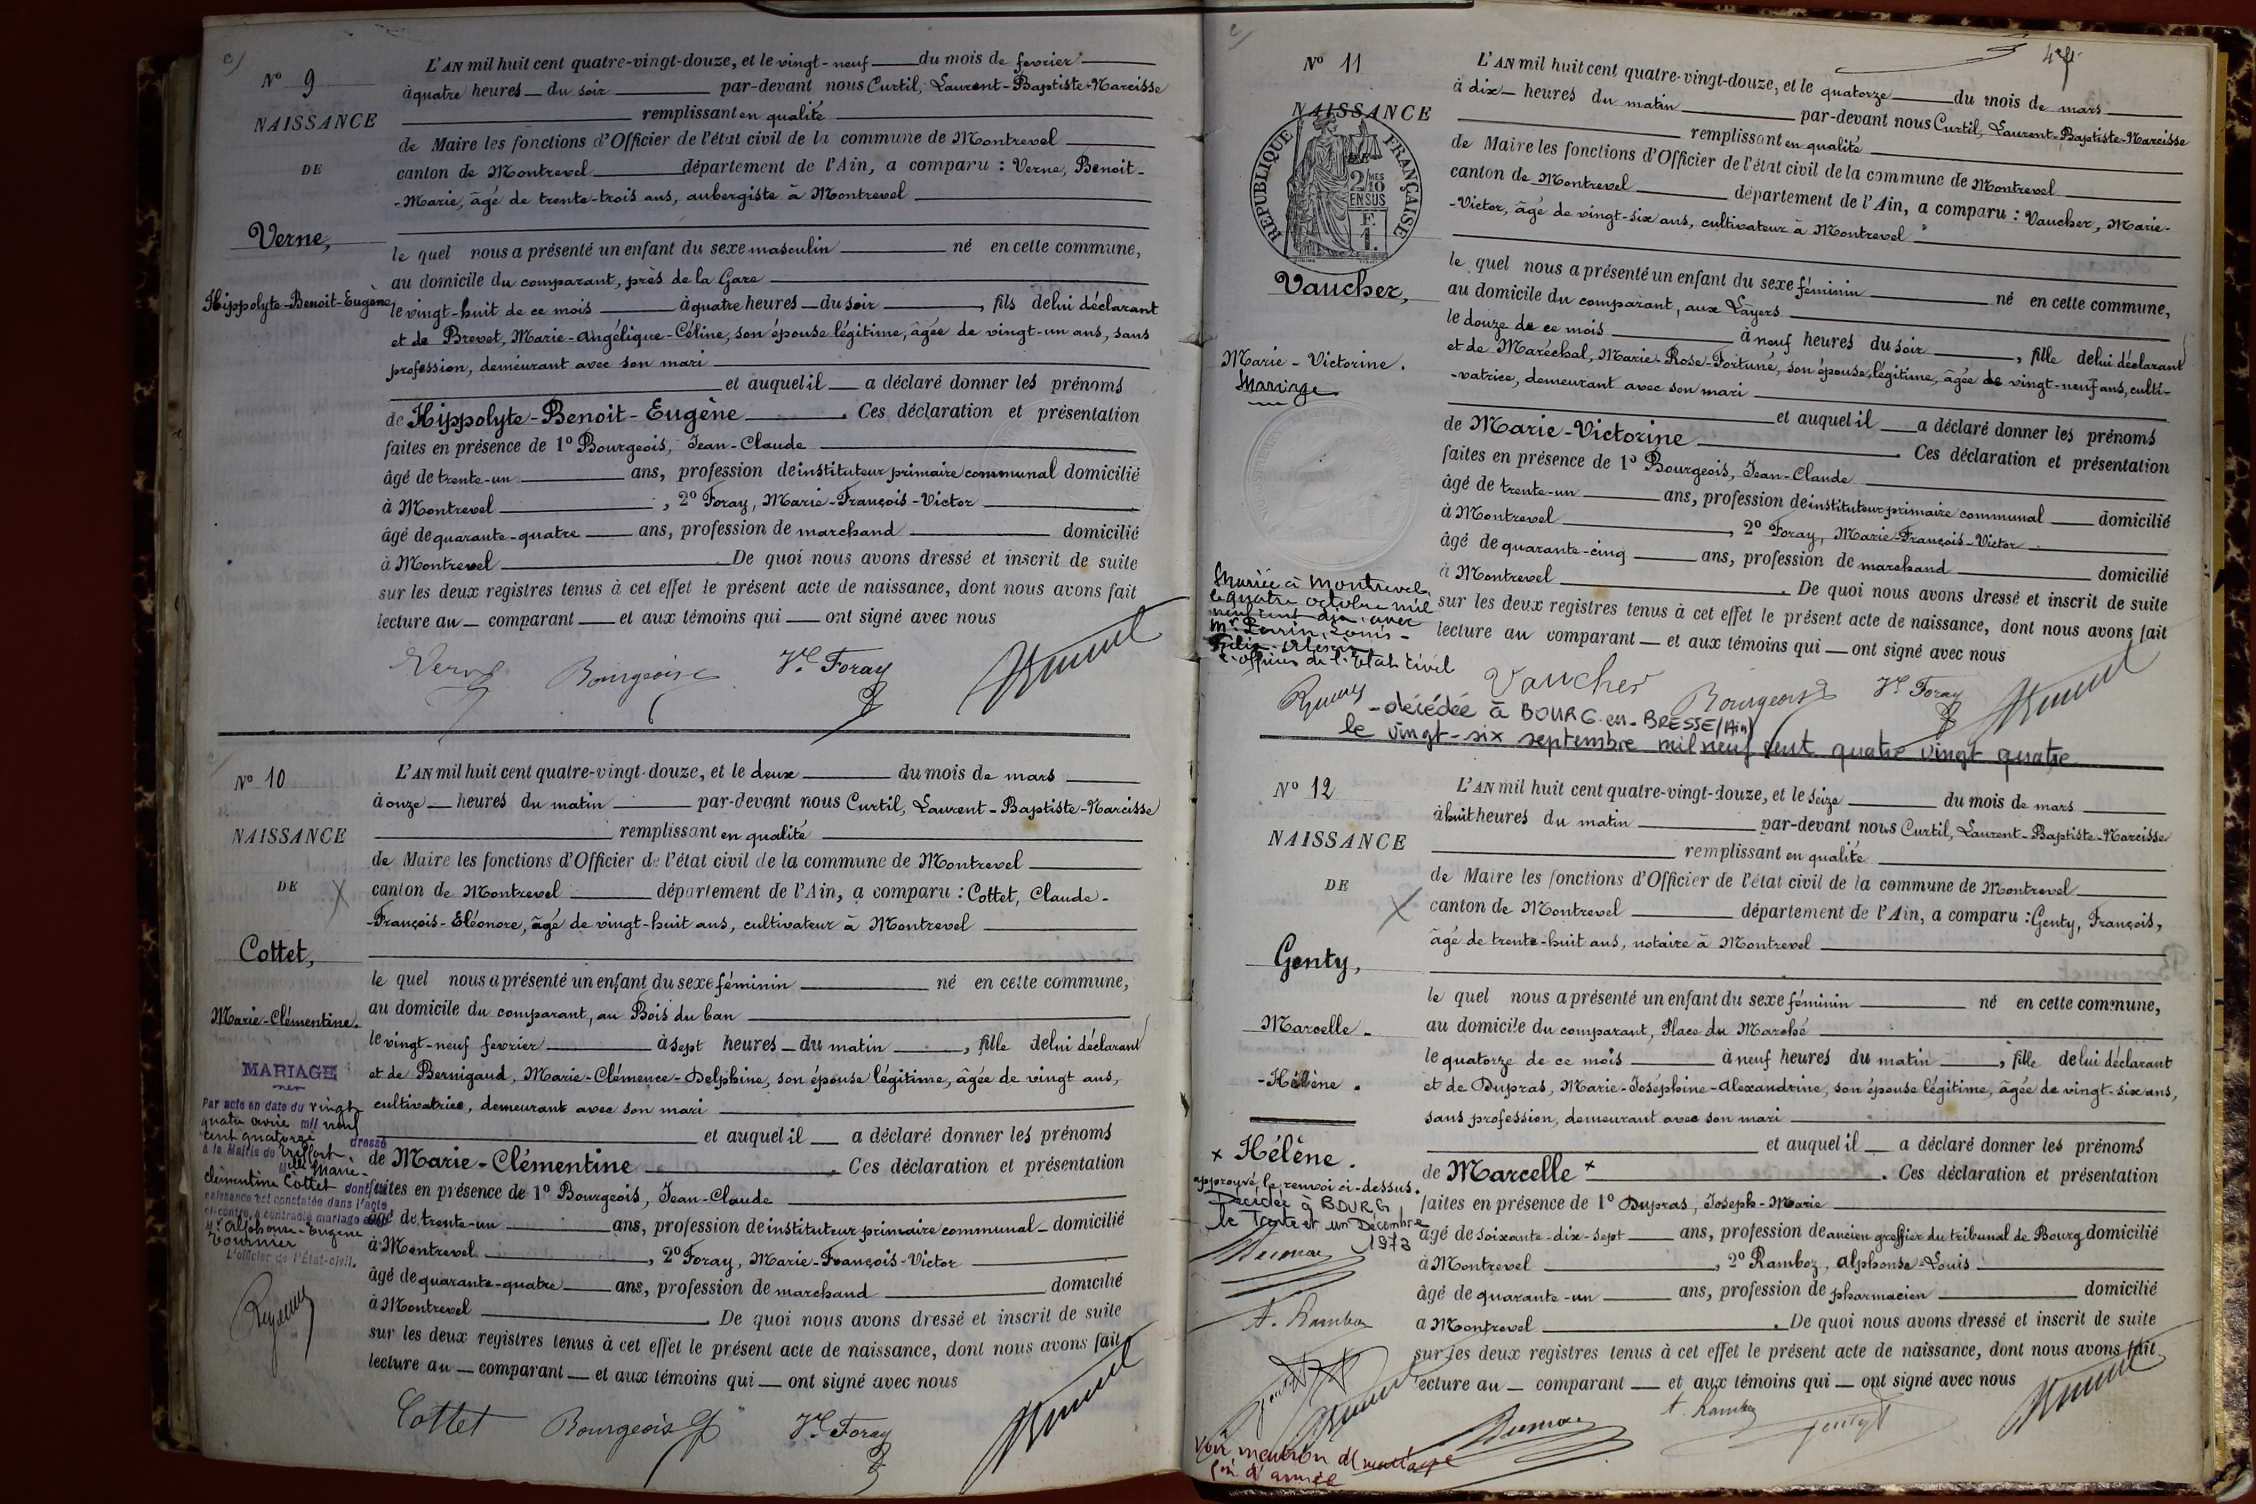 c)
N° 9
L'AN mil huit cent quatre-vingt-douze, et le vingt-neuf du mois de fevrier
à quatre heures du soir par-devant nous Curtil, Laurent-Baptiste-Narcisse
NAISSANCE
remplissant en qualité
de Maire les fonctions d'Officier de l'état civil de la commune de Montrevel
DE
canton de Montrevel département de l'Ain, a comparu : Verne, Benoit-
-Marie, âgé de trente-trois ans, aubergiste à Montrevel
Verne,
le quel nous a présenté un enfant du sexe masculin né en cette commune,
au domicile du comparant, près de la Gare
Hippolyte-Benoit-Eugène
le vingt-huit de ce mois à quatre heures du soir, fils de lui déclarant
et de Brevet, Marie-Angélique-Céline, son épouse légitime, âgée de vingt-un ans, sans
profession, demeurant avec son mari
et auquel il a déclaré donner les prénoms
de Hippolyte-Benoit-Eugène. Ces déclaration et présentation
faites en présence de 1° Bourgeois, Jean-Claude
âgé de trente-un ans, profession de instituteur primaire communal domicilié
à Montrevel, 2° Foray, Marie-François-Victor
âgé de quarante-quatre ans, profession de marchand domicilié
à Montrevel. De quoi nous avons dressé et inscrit de suite
sur les deux registres tenus à cet effet le présent acte de naissance, dont nous avons fait
lecture au comparant et aux témoins qui ont signé avec nous
Verne Bourgeois Vr Foray
N° 10
L'AN mil huit cent quatre-vingt-douze, et le deux du mois de mars
à onze heures du matin par-devant nous Curtil, Laurent-Baptiste-Narcisse
NAISSANCE
remplissant en qualité
de Maire les fonctions d'Officier de l'état civil de la commune de Montrevel
DE
canton de Montrevel département de l'Ain, a comparu : Cottet, Claude-
-François-Eléonore, âgé de vingt-huit ans, cultivateur à Montrevel
Cottet,
le quel nous a présenté un enfant du sexe féminin né en cette commune,
au domicile du comparant, au Bois du ban
Marie-Clémentine.
le vingt-neuf fevrier à sept heures du matin, fille de lui déclarant
et de Bernigaud, Marie-Clémence-Delphine, son épouse légitime, âgée de vingt ans,
cultivatrice, demeurant avec son mari
et auquel il a déclaré donner les prénoms
de Marie-Clémentine. Ces déclaration et présentation
faites en présence de 1° Bourgeois, Jean-Claude
âgé de trente-un ans, profession de instituteur primaire communal domicilié
à Montrevel, 2° Foray, Marie-François-Victor
âgé de quarante-quatre ans, profession de marchand domicilié
à Montrevel. De quoi nous avons dressé et inscrit de suite
sur les deux registres tenus à cet effet le présent acte de naissance, dont nous avons fait
lecture au comparant et aux témoins qui ont signé avec nous
MARIAGE
Par acte en date du vingt
quatre avril mil neuf
cent quatorze dressé
à la Mairie de Treffort
Marie-
Clémentine Cottet dont la
naissance est constatée dans l'acte
ci-contre, a contracté mariage avec
Mr Alphonse-Eugène
Tournier
L'officier de l'Etat-civil.
Cottet Bourgeois Vr Foray
c)
N° 11
L'AN mil huit cent quatre-vingt-douze, et le quatorze du mois de mars
à dix heures du matin par-devant nous Curtil, Laurent-Baptiste-Narcisse
NAISSANCE
remplissant en qualité
RÉPUBLIQUE FRANÇAISE
2/10 MES
EN SUS
F.
1.
de Maire les fonctions d'Officier de l'état civil de la commune de Montrevel
canton de Montrevel département de l'Ain, a comparu : Vaucher, Marie-
-Victor, âgé de vingt-six ans, cultivateur à Montrevel
Vaucher,
le quel nous a présenté un enfant du sexe féminin né en cette commune,
au domicile du comparant, aux Layers
le douze de ce mois à neuf heures du soir, fille de lui déclarant
Marie-Victorine.
Mariage
et de Maréchal, Marie-Rose-Fortuné, son épouse légitime, âgée de vingt-neuf ans, culti-
-vatrice, demeurant avec son mari
et auquel il a déclaré donner les prénoms
de Marie-Victorine. Ces déclaration et présentation
faites en présence de 1° Bourgeois, Jean-Claude
âgé de trente-un ans, profession de instituteur primaire communal domicilié
à Montrevel, 2° Foray, Marie-François-Victor
âgé de quarante-cinq ans, profession de marchand domicilié
à Montrevel. De quoi nous avons dressé et inscrit de suite
sur les deux registres tenus à cet effet le présent acte de naissance, dont nous avons fait
lecture au comparant et aux témoins qui ont signé avec nous
Mariée à Montrevel
le quatre octobre mil
neuf cent dix avec
Mr Perrin, Louis-
L'officier de l'Etat Civil
Vaucher Bourgeois Vr Foray
-décédée à BOURG-en-BRESSE (Ain)
le vingt-six septembre mil neuf cent quatre vingt quatre
N° 12
L'AN mil huit cent quatre-vingt-douze, et le seize du mois de mars
à huit heures du matin par-devant nous Curtil, Laurent-Baptiste-Narcisse
NAISSANCE
remplissant en qualité
de Maire les fonctions d'Officier de l'état civil de la commune de Montrevel
DE
canton de Montrevel département de l'Ain, a comparu : Genty, François,
âgé de trente-huit ans, notaire à Montrevel
Genty,
le quel nous a présenté un enfant du sexe féminin né en cette commune,
Marcelle-
au domicile du comparant, Place du Marché
le quatorze de ce mois à neuf heures du matin, fille de lui déclarant
-Hélène.
et de Dupras, Marie-Joséphine-Alexandrine, son épouse légitime, âgée de vingt-six ans,
sans profession, demeurant avec son mari
et auquel il a déclaré donner les prénoms
x Hélène.
de Marcelle x. Ces déclaration et présentation
approuvé le renvoi ci-dessus.
faites en présence de 1° Dupras, Joseph-Marie
Décédée à BOURG
le Trente et un Décembre
1973
âgé de soixante-dix-sept ans, profession de ancien greffier du tribunal de Bourg domicilié
à Montrevel, 2° Ramboz, Alphonse-Louis
âgé de quarante-un ans, profession de pharmacien domicilié
A. Ramboz
a Montrevel. De quoi nous avons dressé et inscrit de suite
sur les deux registres tenus à cet effet le présent acte de naissance, dont nous avons fait
lecture au comparant et aux témoins qui ont signé avec nous
A. Ramboz
Voir mention de mariage
fin d'année